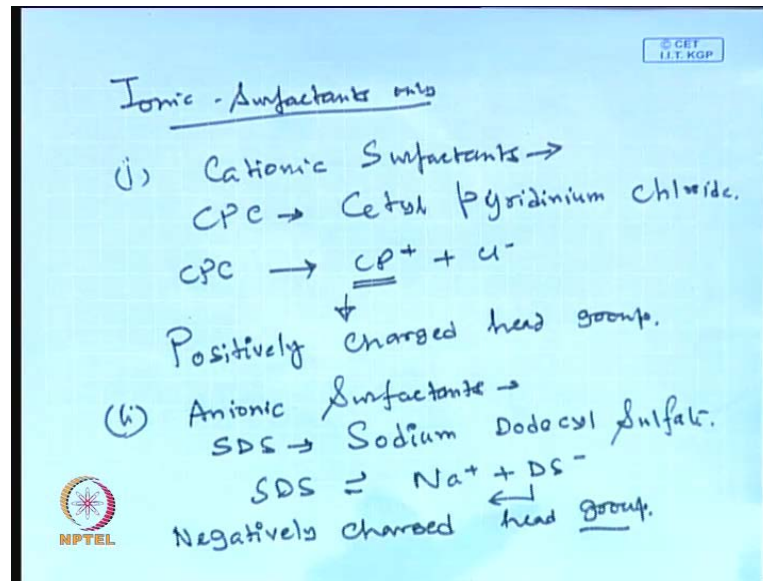 © CET
I.I.T. KGP
Ionic - Surfactants only
(i) Cationic Surfactants →
CPC → Cetyl Pyridinium Chloride.
CPC → CP+ + Cl-
↓
Positively charged head group.
(ii) Anionic Surfactants →
SDS → Sodium Dodecyl Sulfate.
SDS ⇌ Na+ + DS-
Negatively charged head group.
NPTEL